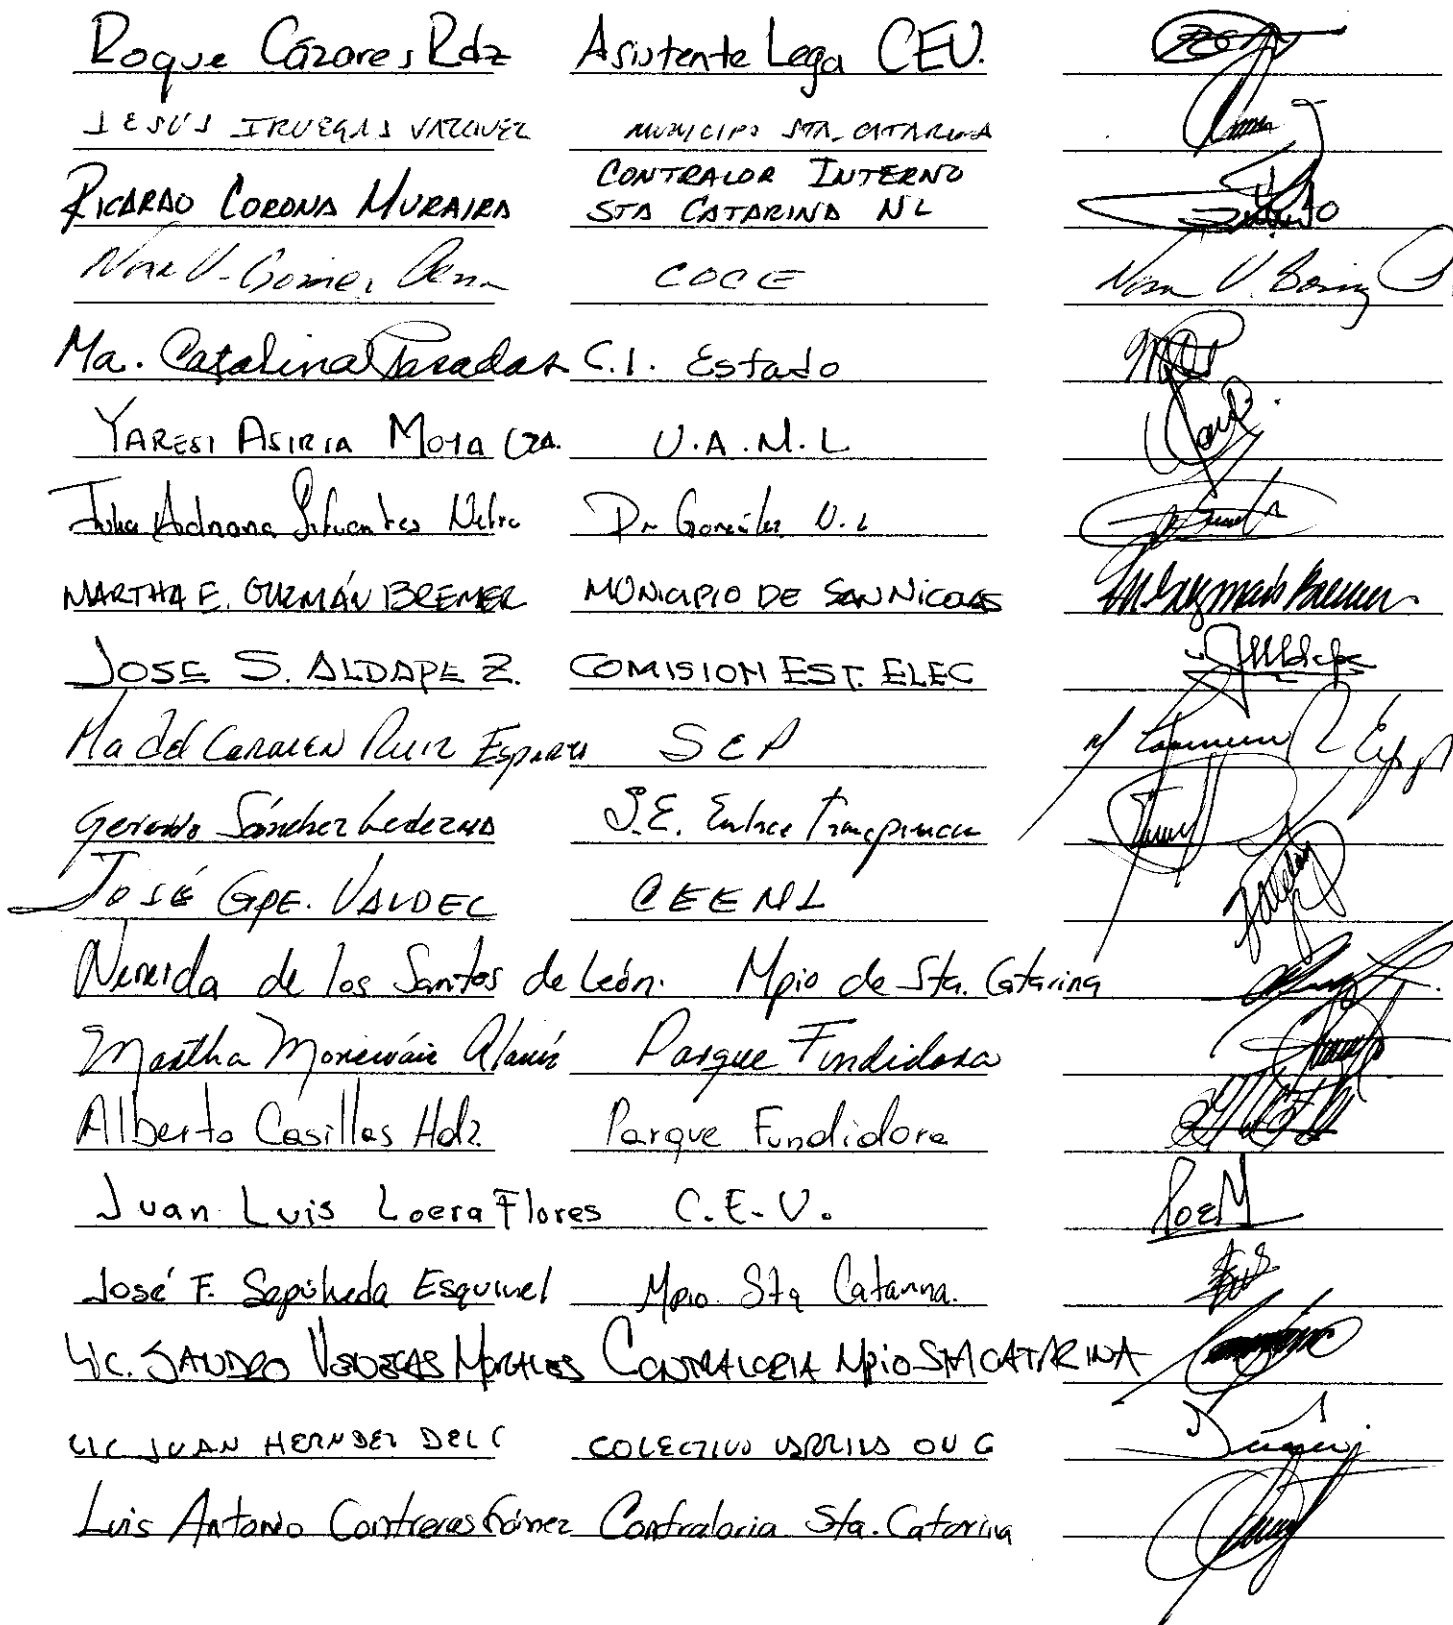 Roque Cázares Rdz Asistente Lega CEV.
JESUS IRUEGAS VAZQUEZ MUNICIPO STA. CATARINA
CONTRALOR INTERNO
RICARDO CORONA MURAIRA STA CATARINA NL
Nora V. Gomez COCE
Ma. Catalina Posadas C.I. Estado
YARESI ASIRIA MOYA GZA. U.A.N.L
Julia Adriana Sifuentes Dr. González N.L
MARTHA E. GUZMÁN BREMER MUNICIPIO DE SAN NICOLAS
JOSE S. ALDAPE Z. COMISION EST. ELEC
Ma del Carmen Ruiz Esparza SEP
Gerardo Sánchez Ledezma S.E. Enlace
JOSÉ GPE. VALDEC CEENL
Nereida de los Santos de León. Mpio de Sta. Catarina
Martha Moncivais Alanís Parque Fundidora
Alberto Casillas Hdz. Parque Fundidora
Juan Luis Loera Flores C.E.V.
José F. Sepúlveda Esquivel Mpio. Sta Catarina.
LIC. SANDRO VENEGAS MORALES CONTRALORIA MPIO STA CATARINA
LIC JUAN HERNDEZ DEL C COLECTIVO
Luis Antonio Contreras Gámez Contraloria Sta. Catarina